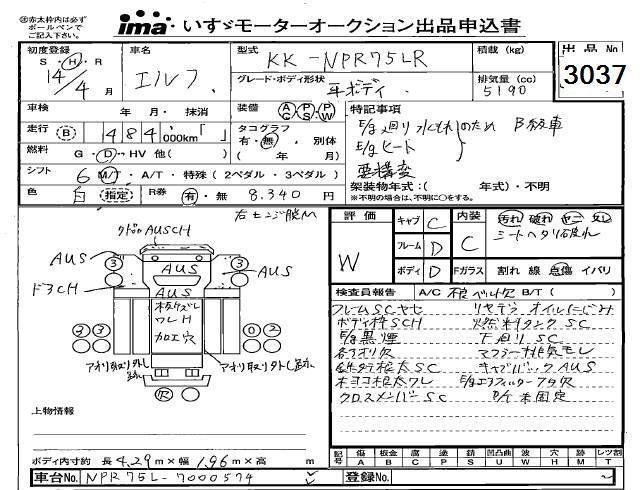 ㊟赤太枠内は必ず
ボールペンで
ご記入下さい。
ima いすゞモーターオークション出品申込書
初度登録 車名 型式 積載 (kg) 出品No
S・H・R エルフ KK-NPR75LR 3037
14/4 月 グレード・ボディ形状 平ボディ 排気量(cc) 5190
車検 年 月・抹消 装備 AC PS PW 特記事項
走行 B 484,000km「 」 タコグラフ 有・無 別体 E/g廻り水もれのため B級車
燃料 G・D・HV 他( ) ( 年 月) E/gヒート
シフト 6 M/T・A/T・特殊(2ペダル・3ペダル) 要構変
架装物年式:( 年式)・不明
色 白 指定 R券 有・無 8,340円 ※不明の場合は、不明に○をする。
右ヒンジ腐M
評価 W キャブ C 内装 C 汚れ 破れ
フレーム D シートヘタリ破れ
ボディ D Fガラス 割れ 線 点傷 イバリ
AUSCH
AUS 3 AUS 3 AUS
ドアCH AUS
ワレH
加工穴
3 3 0 2
アオリ取り外し跡 アオリ取り外し跡
R
検査員報告 A/C B/T ( )
フレームSCサビ リヤデフオイルにじみ
ボディ枠SCH 燃料タンクSC
E/g黒煙 下廻りSC
各アオリ欠 マフラー排気モレ
SC キャブバックAUS
ワレ E/gエアフィルターフタ欠
クロスメンバーSC 未固定
上物情報
ボディ内寸約 長4.29m×幅1.96m×高 m
記号 傷 A 板金 B 腐 C 塗 P 錆 S 凹凸曲 U 波 W 穴 H 跡 M レツ割 T
車台No. NPR75L-7000574 登録No.